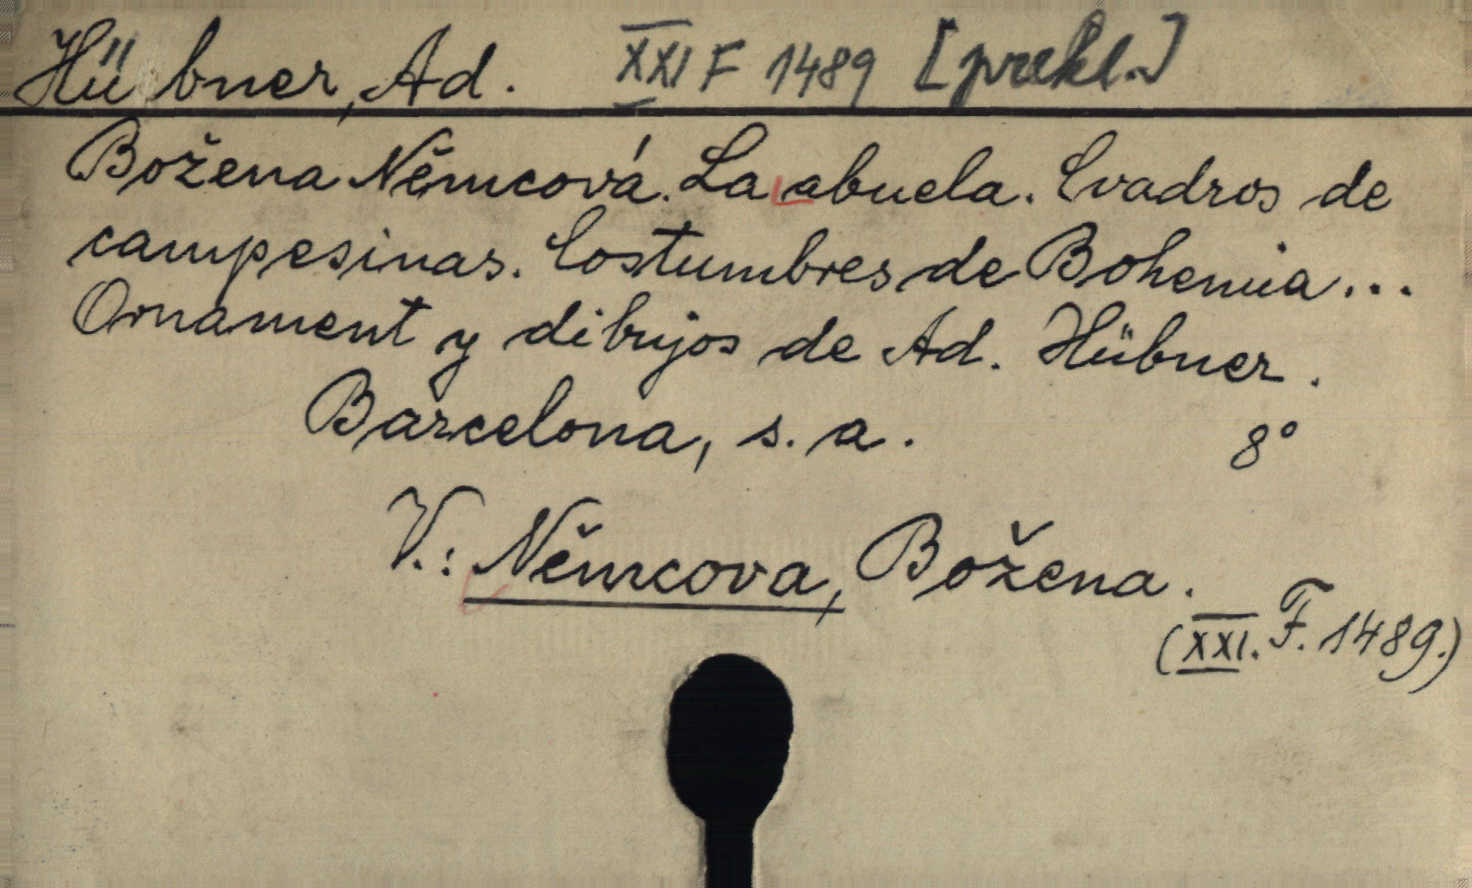 Hübner, Ad. XXI F 1489 [překl.]
Božena Němcová. La abuela. Cvadros de
campesinas. Costumbres de Bohemia...
Ornament y dibujos de Ad. Hübner.
Barcelona, s. a. 8°
V.: Němcova, Božena.
(XXI. F. 1489.)